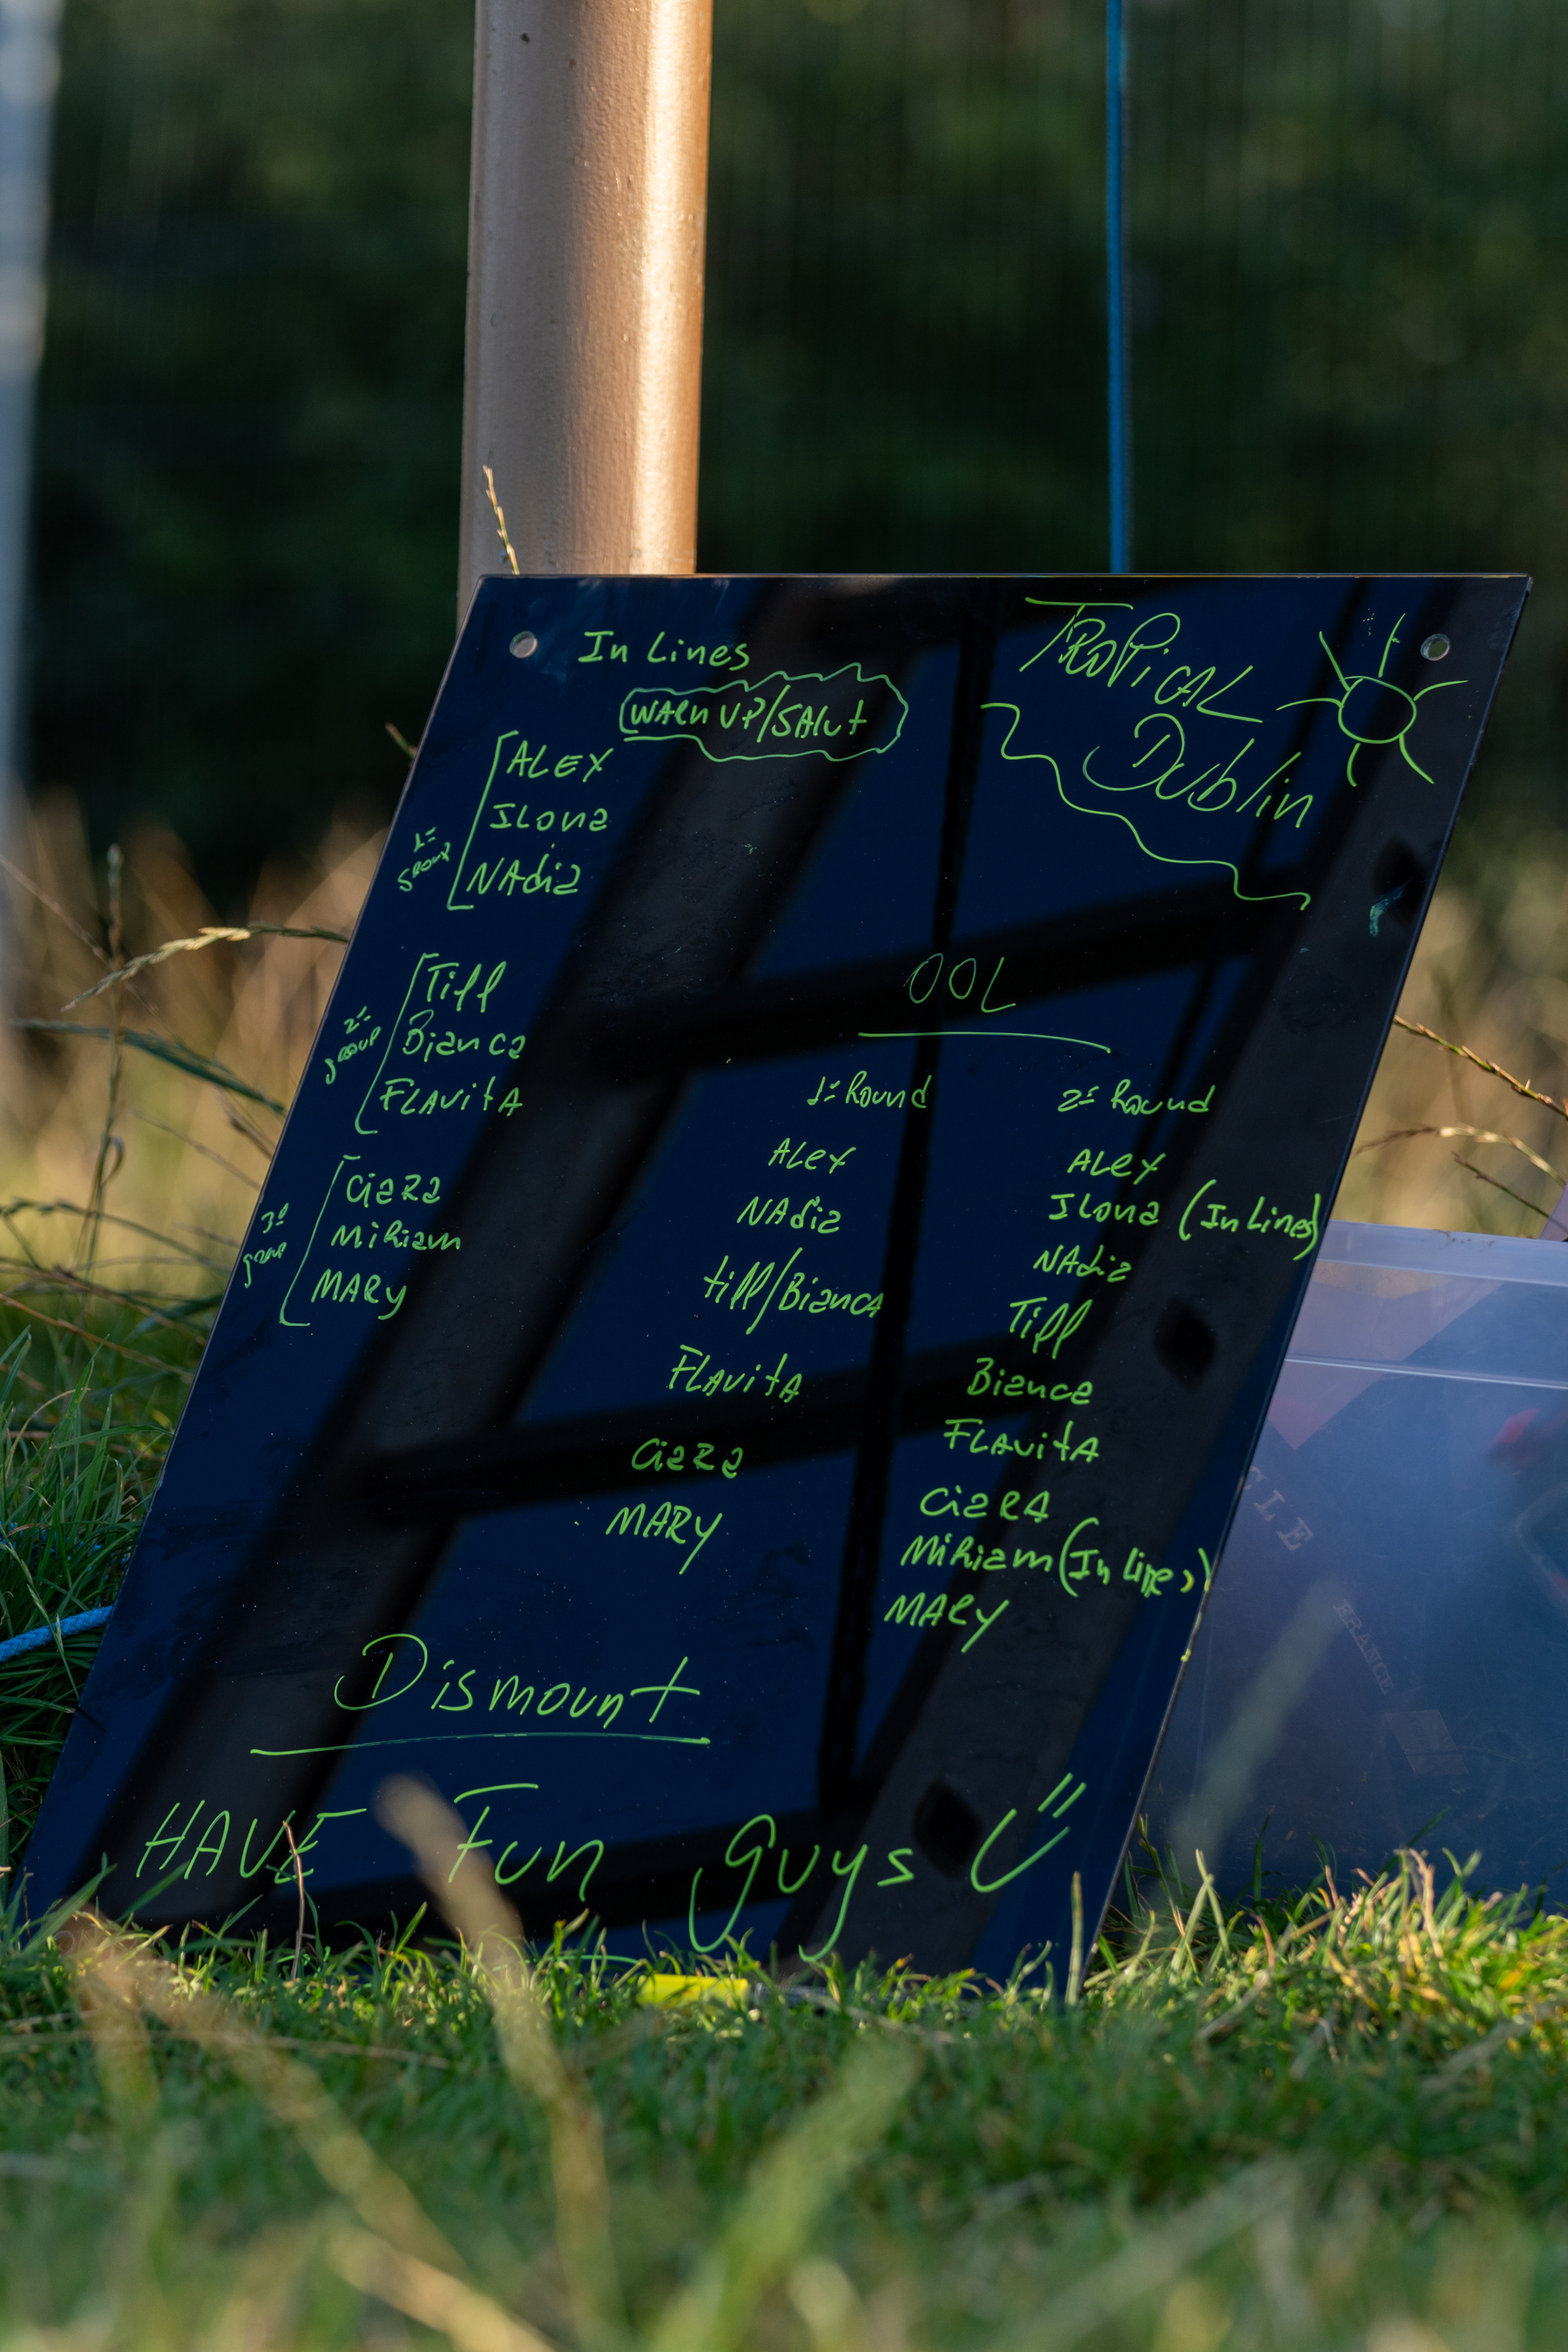 In Lines
WARM UP/SALUt
TROPiCAL
Dublin
1º
group
ALEX
ILona
NAdia
2º
group
Tiff
Bianca
FLAvitA
3º
group
CiaRa
MiRiam
MARy
OOL
1º Round
ALex
NAdia
tiff/BiancA
FLAvitA
CiaRa
MARY
2º Round
ALex
ILona (In Lines)
NAdia
Tiff
Bianca
FLAvitA
CiaRA
MiRiam (In lines)
MARY
Dismount
HAVE Fun guys
CLE
FRANCE